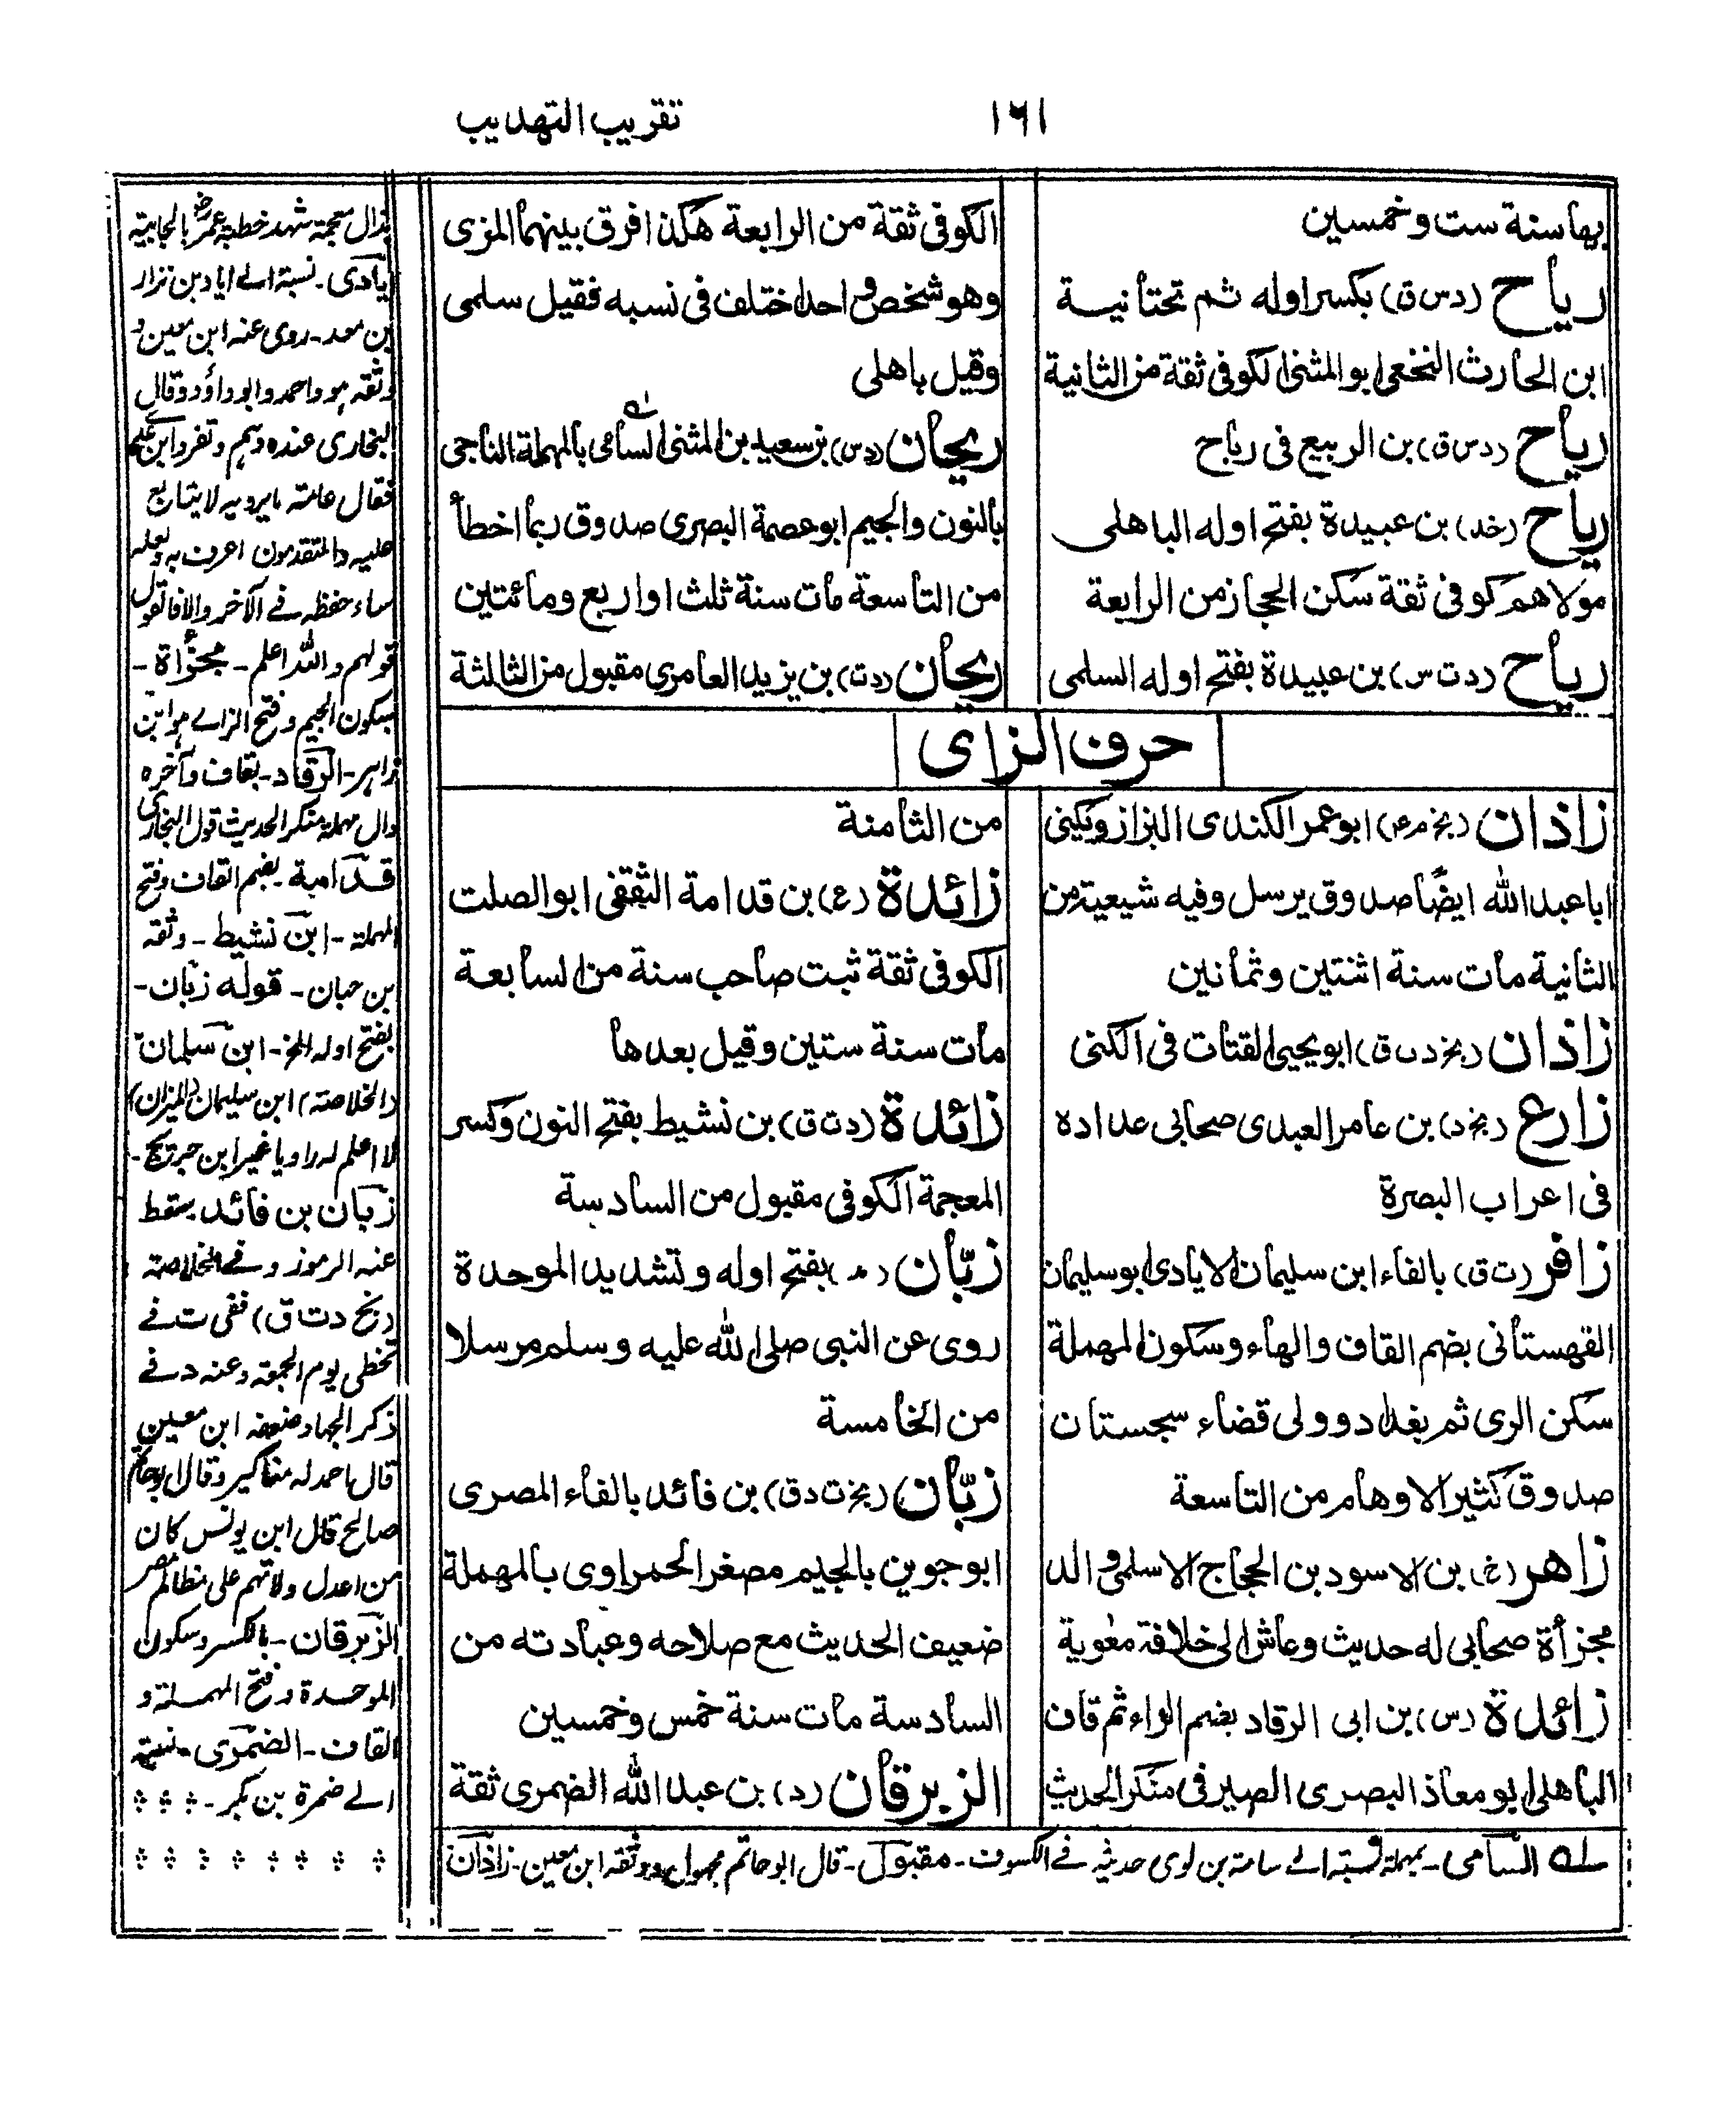 ١٦١
تقريب التهذيب
بها سنة ست وخمسين
رياح (د س ق) بكسر اوله ثم تحتانية
ابن الحارث النخعى ابو المثنى الكوفى ثقة من الثانية
رياح (د س ق) بن الربيع فى رباح
رياح (خد) بن عبيدة بفتح اوله الباهلى
مولاهم كوفى ثقة سكن الحجاز من الرابعة
رياح (د ت س) بن عبيدة بفتح اوله السلمى
الكوفى ثقة من الرابعة هكذا فرق بينهما المزى
وهو شخص واحد اختلف فى نسبه فقيل سلمى
وقيل باهلى
ريحان (د س) بن سعيد بن المثنى السامى بالمهملة الناجى
بالنون والجيم ابو عصمة البصرى صدوق ربما اخطأ
من التاسعة مات سنة ثلث او اربع ومائتين
ريحان (د ت) بن يزيد العامرى مقبول من الثالثة
حرف الزاى
زاذان (بخ م عه) ابو عمر الكندى البزاز ويكنى
ابا عبد الله ايضًا صدوق يرسل وفيه شيعية من
الثانية مات سنة اثنتين وثمانين
زاذان (بخ د ت ق) ابو يحيى القتات فى الكنى
زارع (بخ د) بن عامر العبدى صحابى عداده
فى اعراب البصرة
زافر (ت ق) بالفاء ابن سليمان الايادى ابو سليمان
القهستانى بضم القاف والهاء وسكون المهملة
سكن الرى ثم بغداد وولى قضاء سجستان
صدوق كثير الاوهام من التاسعة
زاهر (خ) بن الاسود بن الحجاج الاسلمى والد
مجزأة صحابى له حديث وعاش الى خلافة معوية
زائدة (س) بن ابى الرقاد بضم الراء ثم قاف
الباهلى ابو معاذ البصرى الصيرفى منكر الحديث
من الثامنة
زائدة (ع) بن قدامة الثقفى ابو الصلت
الكوفى ثقة ثبت صاحب سنة من السابعة
مات سنة ستين وقيل بعدها
زائدة (د ت ق) بن نشيط بفتح النون وكسر
المعجمة الكوفى مقبول من السادسة
زبّان (مد) بفتح اوله وتشديد الموحدة
روى عن النبى صلى الله عليه وسلم مرسلا
من الخامسة
زبّان (بخ ت د ق) بن فائد بالفاء المصرى
ابو جوين بالجيم مصغر الحمراوى بالمهملة
ضعيف الحديث مع صلاحه وعبادته من
السادسة مات سنة خمس وخمسين
الزبرقان (د) بن عبد الله الضمرى ثقة
له السامى - بمهملة نسبة الى سامة بن لوى حديثه فے الكسوف - مقبول - قال ابو حاتم مجهول ووثقه ابن معين - زاذان
بذال معجمة شهد خطبة عمر بالجابية
ايادى - نسبة الے اياد بن نزار
بن معد - روى عنه ابن معين و
وثقه هو واحمد وابو داؤد وقال
البخارى عنده وهم وتفرد ابن عدى
فقال عامته ما يرويه لا يتابع
عليه والمتقدمون اعرف به ولعله
ساء حفظه فے الآخر والا فالقول
قولهم والله اعلم - مجزأة -
بسكون الجيم وفتح الزاے هو ابن
زاهر - الرقاد - بقاف وآخره
دال مهملة منكر الحديث قول البخارى
قدامة - بضم القاف وفتح
المهملة - ابن نشيط - وثقه
ابن حبان - قوله زبان -
بفتح اوله الخ - ابن سلمان
(الخلاصة) ابن سليمان (الميزان)
لا اعلم له راويا غير ابن جريج -
زبان بن فائد سقط
عنه الرموز وفے الخلاصة
(بخ د ت ق) ففى ت فے
تخطى يوم الجمعة وعند د فے
ذكر الجهاد ضعفه ابن معين
قال احمد له مناكير وقال ابو حاتم
صالح قال ابن يونس كان
من اعدل ولاتهم على مظالم مصر
الزبرقان - بالكسر وسكون
الموحدة وفتح المهملة و
القاف - الضمرى - نسبة
الے ضمرة بن بكر -